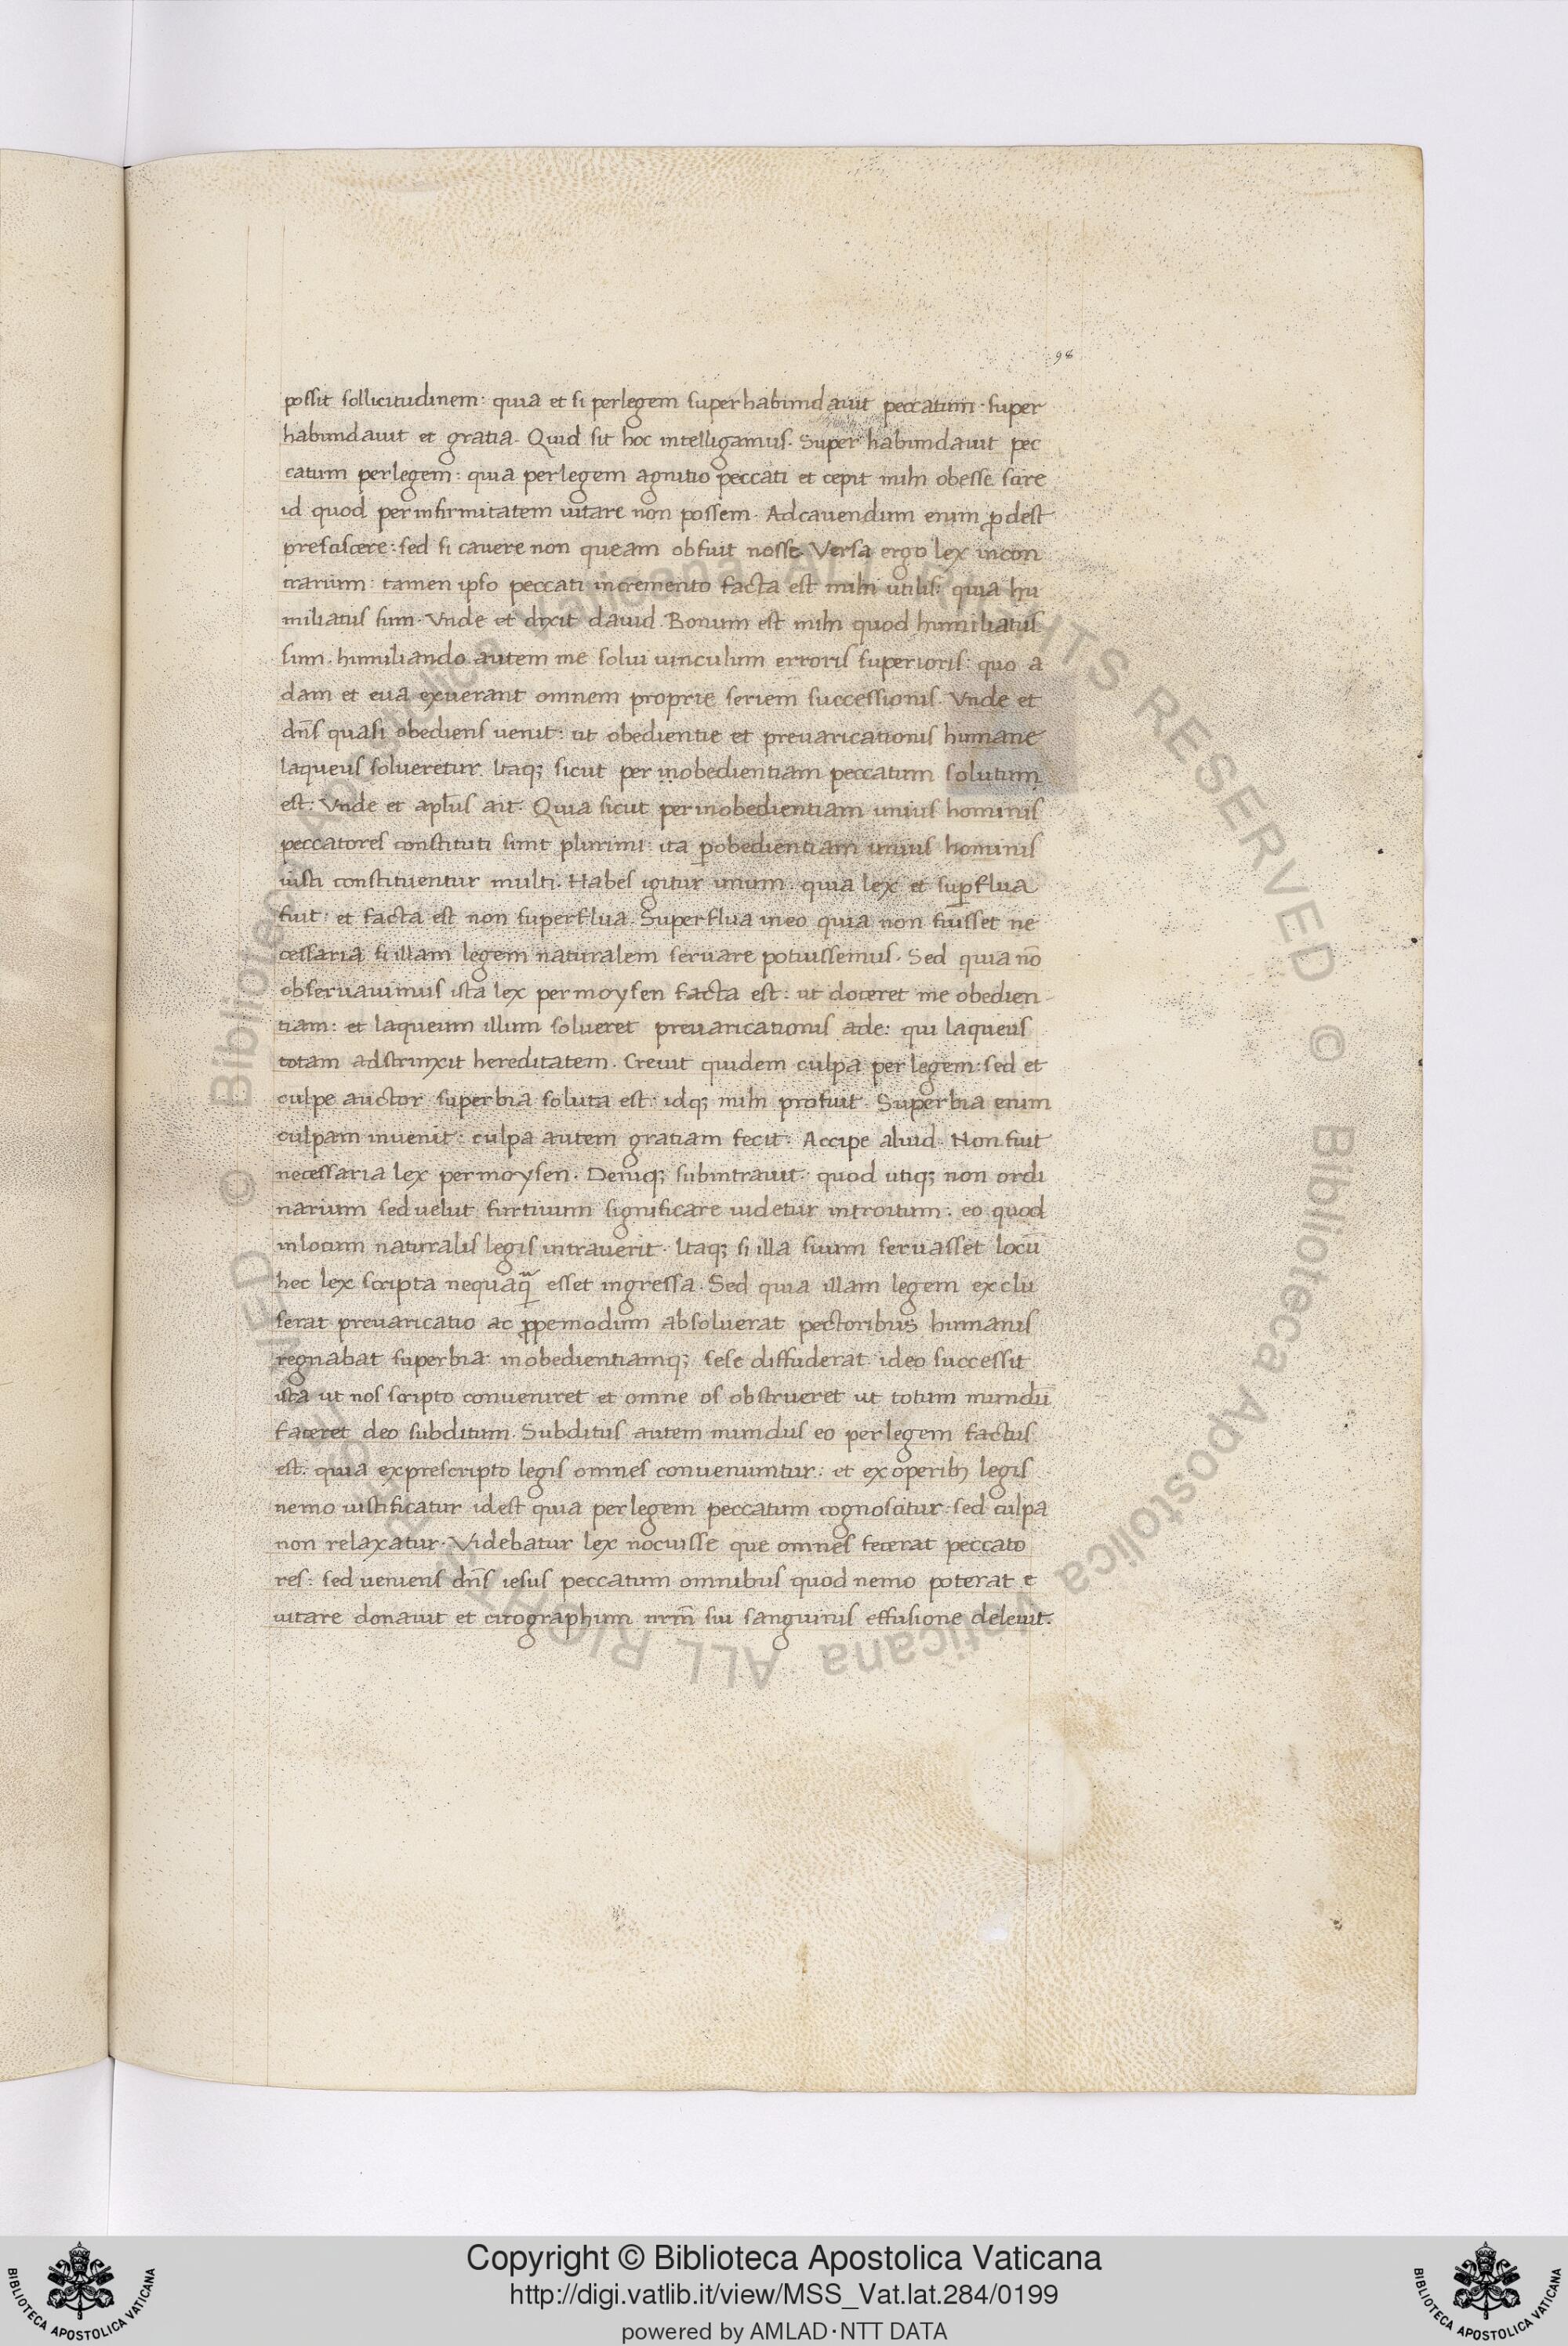 98
possit sollicitudinem: quia et si perlegem superhabundauit peccatum· super
habundauit et gratia. Quid sit hoc intelligamus. Super habundauit pec
catum perlegem: quia perlegem agnitio peccati et cepit mihi obesse scire
id quod per infirmitatem uitare non possem. Adcauendum enim ꝓdest
presciscere: sed si cauere non queam obfuit nosse. Versa ergo lex incon
trarium: tamen ipso peccati incremento facta est mihi utilis: quia hu
miliatus sum. Vnde et dixit dauid. Bonum est mihi quod humiliatus
sum. humiliando autem me solui uinculum erroris superioris: quo a
dam et eua exuerant omnem proprie seriem successionis. Vnde et
dñs quasi obediens uenit: ut obedientie et preuaricationis humane
laqueus solueretur. Itaq; sicut per inobedientiam peccatum solutum
est. Vnde et apl̄us ait. Quia sicut per inobedientiam unius hominis
peccatores constituti sunt plurimi: ita ꝑobedientiam unius hominis
iusti constituentur multi. Habes igitur unum. quia lex et suꝑflua
fuit: et facta est non superflua. Superflua ineo quia non fuisset ne
cessaria si illam legem naturalem seruare potuissemus. Sed quia nō
obseruauimus ista lex per moysen facta est: ut doceret me obedien
tiam: et laqueum illum solueret preuaricationis ade: qui laqueus
totam adstrinxit hereditatem. Creuit quidem culpa per legem: sed et
culpe auctor superbia soluta est: idq; mihi profuit. Superbia enim
culpam inuenit: culpa autem gratiam fecit. Accipe aliud. Non fuit
necessaria lex per moysen. Deniq; subintrauit. quod utiq; non ordi
narium sed uelut furtiuum significare uidetur introitum. eo quod
inlocum naturalis legis intrauerit. Itaq; si illa suum seruasset locū
hec lex scripta nequaꝗᷓ esset ingressa. Sed quia illam legem exclu
serat preuaricatio ac ꝓpemodum absoluerat pectoribus humanis
regnabat superbia: inobedientiamq; sese diffuderat ideo successit
ista ut nos scripto conueniret et omne os obstrueret ut totum mundū
faceret deo subditum. Subditus autem mundus eo per legem factus
est. quia exprescripto legis omnes conueniuntur: et ex operibꝫ legis
nemo iustificatur idest quia per legem peccatum cognoscitur: sed culpa
non relaxatur. Videbatur lex nocuisse que omnes fecerat peccato
res: sed ueniens dñs iesus peccatum omnibus quod nemo poterat e
uitare donauit et cirographum nrm̄ sui sanguinis effusione deleuit.
© Biblioteca Apostolica Vaticana ALL RIGHTS RESERVED © Biblioteca Apostolica Vaticana ALL RIGHTS RESERVED
BIBLIOTECA APOSTOLICA VATICANA
Copyright © Biblioteca Apostolica Vaticana
http://digi.vatlib.it/view/MSS_Vat.lat.284/0199
powered by AMLAD·NTT DATA
BIBLIOTECA APOSTOLICA VATICANA